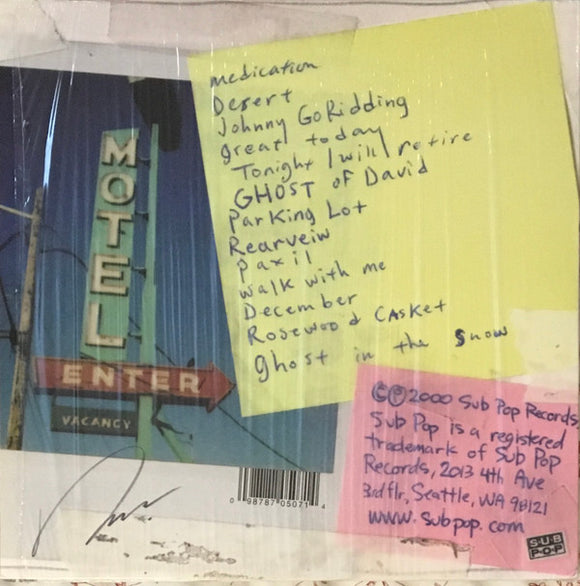 medication
Desert
Johnny GoRidding
great today
Tonight I will retire
GHOST of David
Parking Lot
Rearveiw
Paxil
walk with me
December
Rosewood Casket
ghost in the snow
MOTEL
ENTER
VACANCY
©℗2000 Sub Pop Records,
Sub Pop is a registered
trademark of Sub Pop
Records, 2013 4th Ave
3rd flr, Seattle, WA 98121
www.subpop.com
0 98787 05071 4
SUB
POP